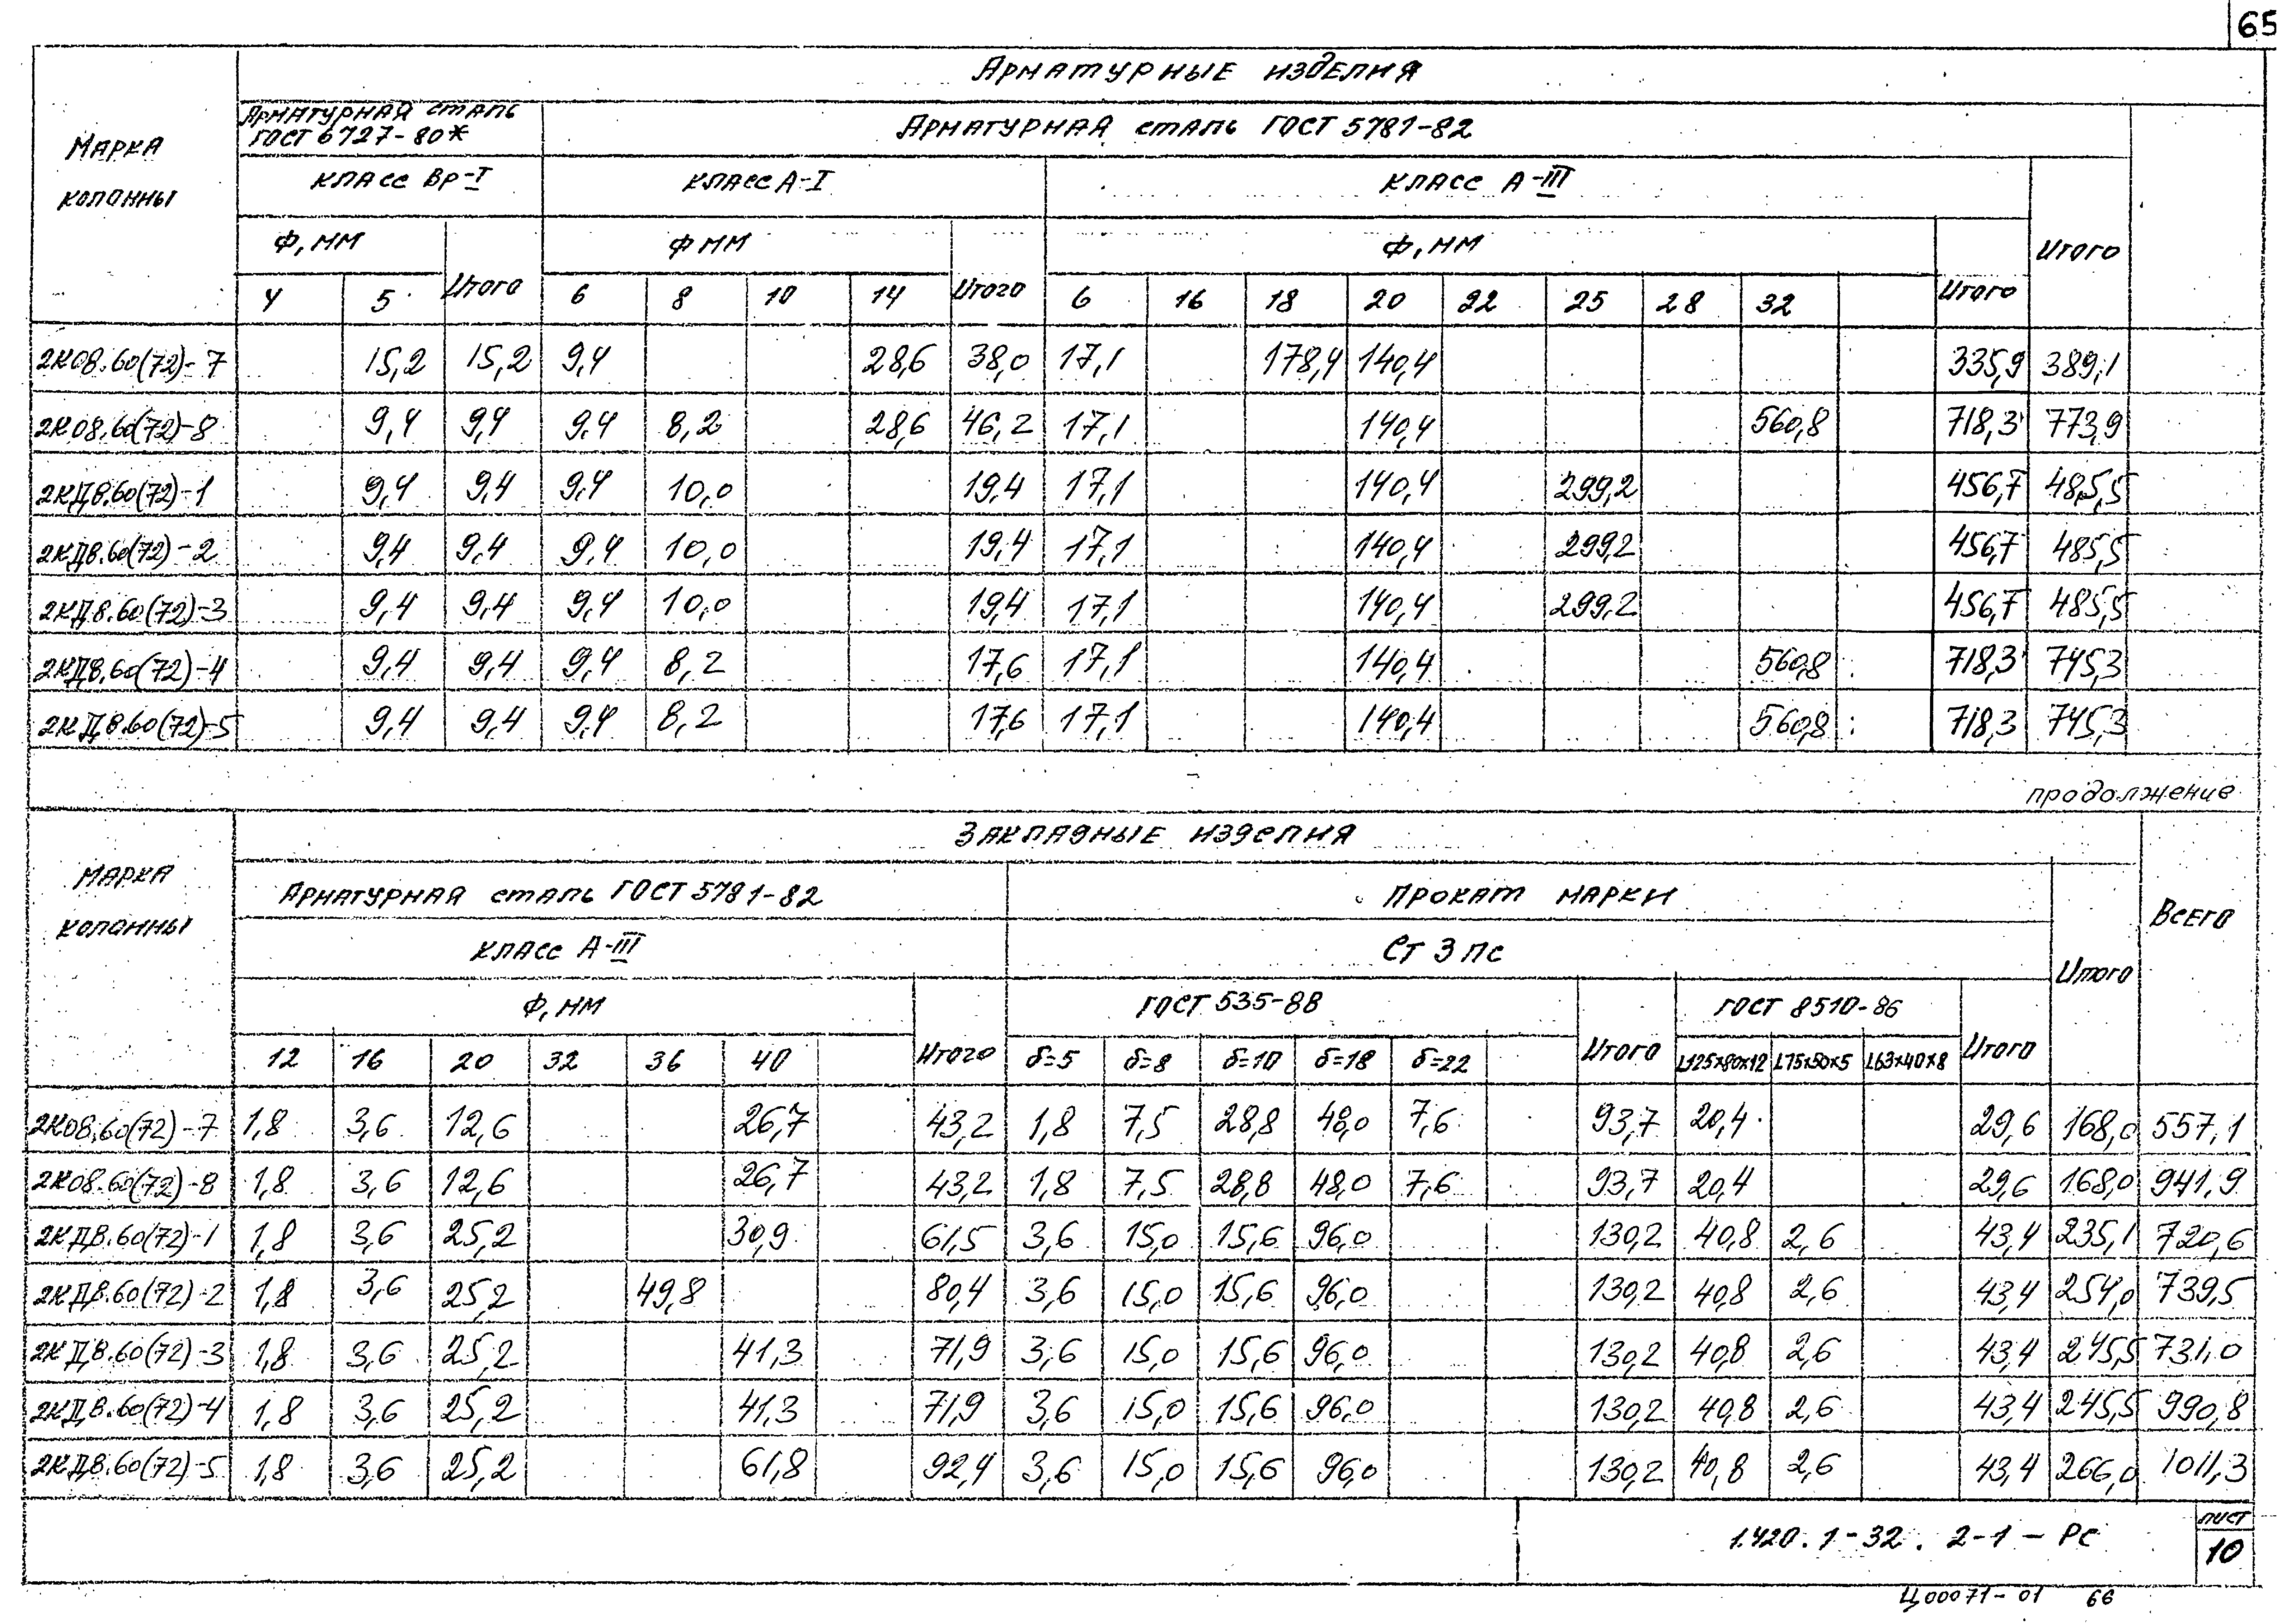 65
Арматурные изделия
Марка колонны
Арматурная сталь ГОСТ 6727-80*
Арматурная сталь ГОСТ 5781-82
класс Вр-I
класс А-I
класс А-III
Итого
Ф, мм
Итого
Ф мм
Итого
Ф, мм
Итого
4 5 6 8 10 14 6 16 18 20 22 25 28 32
2К08.60(72)-7 15,2 15,2 9,4 28,6 38,0 17,1 178,4 140,4 335,9 389,1
2К08.60(72)-8 9,4 9,4 9,4 8,2 28,6 46,2 17,1 140,4 560,8 718,3 773,9
2КД8.60(72)-1 9,4 9,4 9,4 10,0 19,4 17,1 140,4 299,2 456,7 485,5
2КД8.60(72)-2 9,4 9,4 9,4 10,0 19,4 17,1 140,4 299,2 456,7 485,5
2КД8.60(72)-3 9,4 9,4 9,4 10,0 19,4 17,1 140,4 299,2 456,7 485,5
2КД8.60(72)-4 9,4 9,4 9,4 8,2 17,6 17,1 140,4 560,8 718,3 745,3
2КД8.60(72)-5 9,4 9,4 9,4 8,2 17,6 17,1 140,4 560,8 718,3 745,3
продолжение
Закладные изделия
Марка колонны
Арматурная сталь ГОСТ 5781-82
Прокат марки
Всего
класс А-III
Ст 3 пс
Итого
Ф, мм
Итого
ГОСТ 535-88
Итого
ГОСТ 8510-86
Итого
12 16 20 32 36 40 δ=5 δ=8 δ=10 δ=18 δ=22 L125х80х12 L75х50х5 L63х40х8
2К08.60(72)-7 1,8 3,6 12,6 26,7 43,2 1,8 7,5 28,8 48,0 7,6 93,7 20,4 29,6 168,0 557,1
2К08.60(72)-8 1,8 3,6 12,6 26,7 43,2 1,8 7,5 28,8 48,0 7,6 93,7 20,4 29,6 168,0 941,9
2КД8.60(72)-1 1,8 3,6 25,2 30,9 61,5 3,6 15,0 15,6 96,0 130,2 40,8 2,6 43,4 235,1 720,6
2КД8.60(72)-2 1,8 3,6 25,2 49,8 80,4 3,6 15,0 15,6 96,0 130,2 40,8 2,6 43,4 254,0 739,5
2КД8.60(72)-3 1,8 3,6 25,2 41,3 71,9 3,6 15,0 15,6 96,0 130,2 40,8 2,6 43,4 245,5 731,0
2КД8.60(72)-4 1,8 3,6 25,2 41,3 71,9 3,6 15,0 15,6 96,0 130,2 40,8 2,6 43,4 245,5 990,8
2КД8.60(72)-5 1,8 3,6 25,2 61,8 92,4 3,6 15,0 15,6 96,0 130,2 40,8 2,6 43,4 266,0 1011,3
1.420.1-32. 2-1-РС
лист
10
Ц00071-01 66